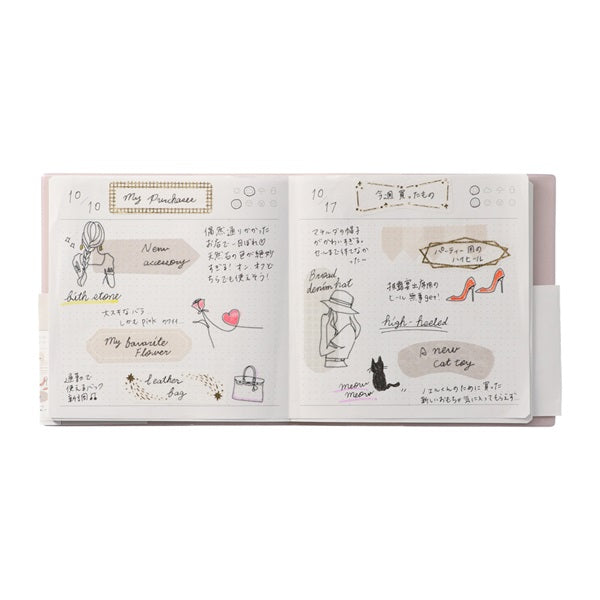 10
10
My Purchaser
New
accessory
偶然通りかかった
お店で一目ぼれ♡
天然石の色が絶妙
すぎる! オン、オフど
ちらでも使えそう!
birth stone
大スキなバラ
しかも pink カワイイ…
My favorite
Flower
通勤で
使えるバッグ
新調♫
leather
bag
10
17
今週買ったもの
マネキンの帽子
がかわいすぎる。
セールまで待てなか
った…
Broad
denim hat
パーティー用の
ハイヒール
披露宴出席用の
ヒール無事get!
high-heeled
A new
Cat toy
meow
meow
ノエルくんのために買った
新しいおもちゃ気に入ってもらえず